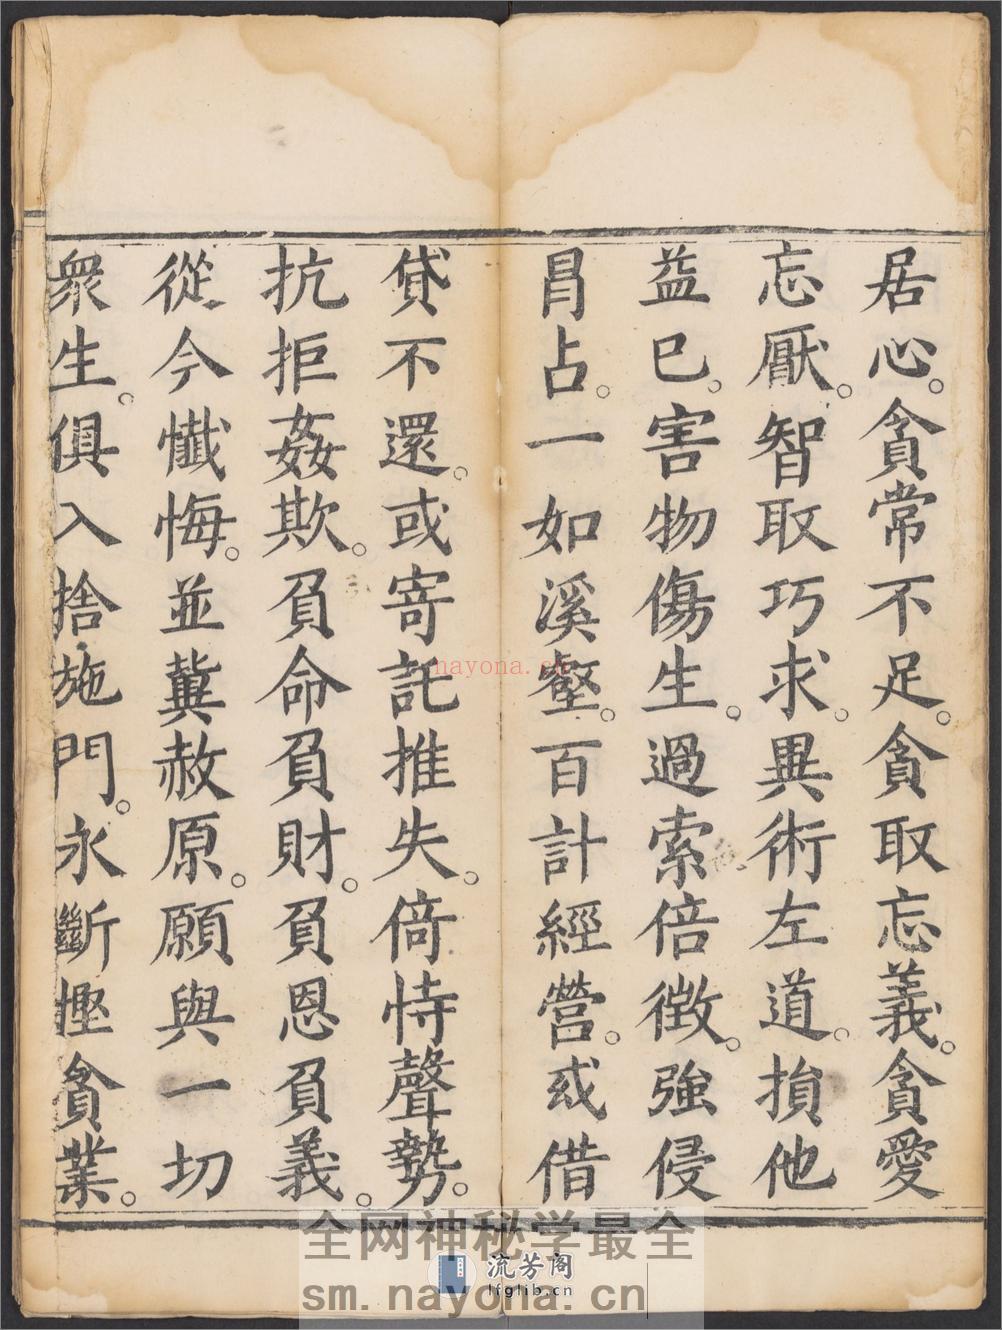 居心。貪常不足。貪取忘義。貪愛
忘厭。智取巧求。異術左道。損他
益已。害物傷生。過索倍徴。強侵
冐占。一如溪壑。百計經營。或借
貸不還。或寄託推失。倚恃聲勢。
抗拒姦欺。負命負財。負恩負義。
從今懺悔。並冀赦原。願與一切
衆生。俱入捨施門。永斷慳貪業。
nayona.cn
全网神秘学最全
流芳阁
lfglib.cn
sm.nayona.cn